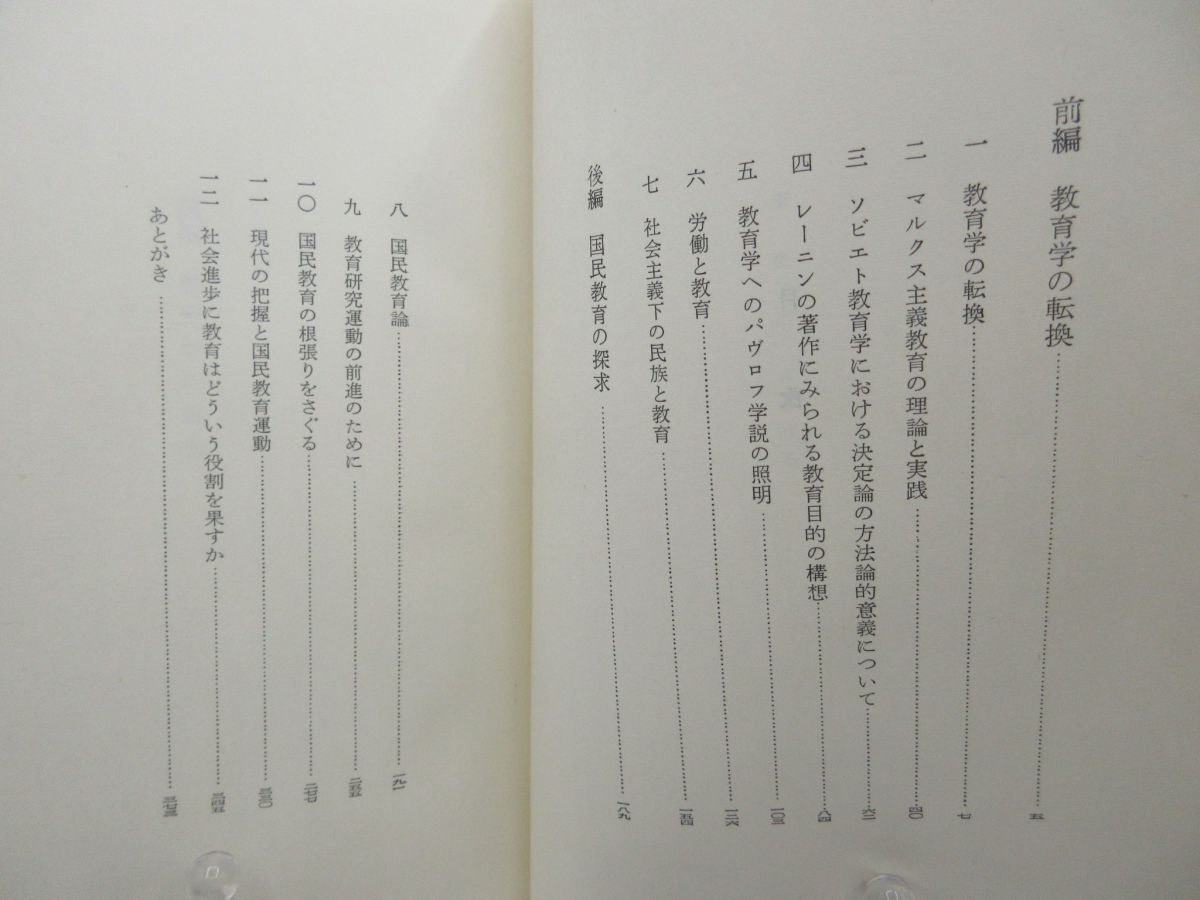 前編 教育学の転換……五
一 教育学の転換……七
二 マルクス主義教育の理論と実践……四〇
三 ソビエト教育学における決定論の方法論的意義について……六二
四 レーニンの著作にみられる教育目的の構想……八四
五 教育学へのパヴロフ学説の照明……一〇三
六 労働と教育……一三六
七 社会主義下の民族と教育……一五四
後編 国民教育の探求……一八九
八 国民教育論……一九一
九 教育研究運動の前進のために……二五五
一〇 国民教育の根張りをさぐる……二七七
一一 現代の把握と国民教育運動……三三〇
一二 社会進歩に教育はどういう役割を果すか……三四五
あとがき……三七三